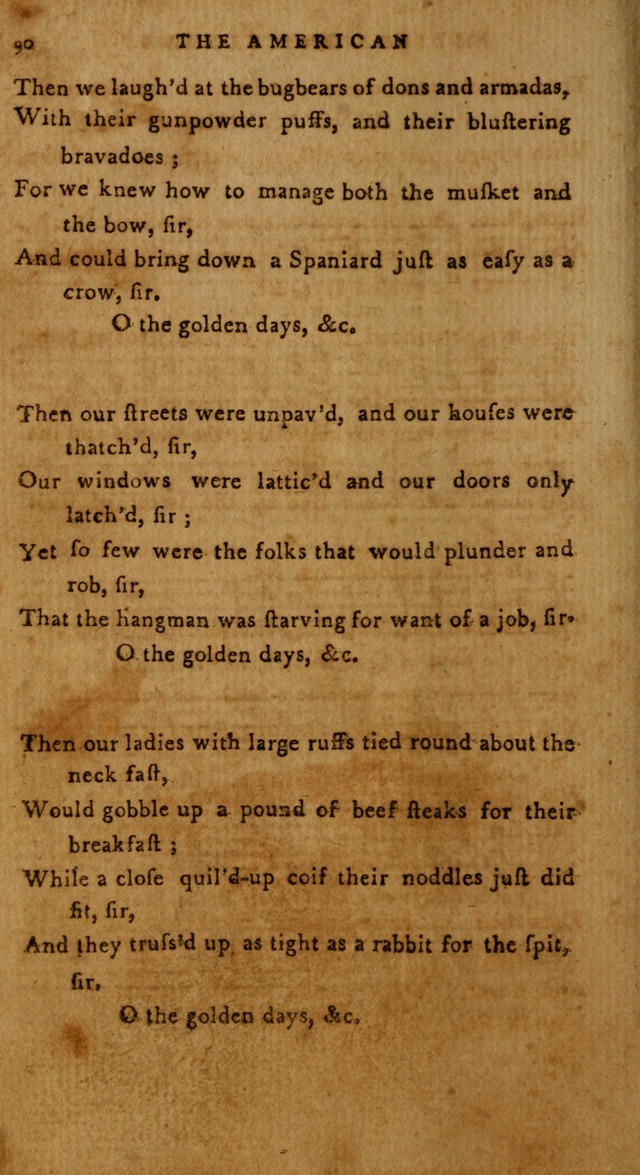 90 THE AMERICAN
Then we laugh'd at the bugbears of dons and armadas,
With their gunpowder puffs, and their bluſtering
bravadoes ;
For we knew how to manage both the muſket and
the bow, ſir,
And could bring down a Spaniard juſt as eaſy as a
crow, ſir.
O the golden days, &c.
Then our ſtreets were unpav'd, and our houſes were
thatch'd, ſir,
Our windows were lattic'd and our doors only
latch'd, ſir ;
Yet ſo few were the folks that would plunder and
rob, ſir,
That the hangman was ſtarving for want of a job, ſir.
O the golden days, &c.
Then our ladies with large ruffs tied round about the
neck faſt,
Would gobble up a pound of beef ſteaks for their
breakfaſt ;
While a cloſe quil'd-up coif their noddles juſt did
fit, ſir,
And they truſs'd up as tight as a rabbit for the ſpit,
ſir.
O the golden days, &c.